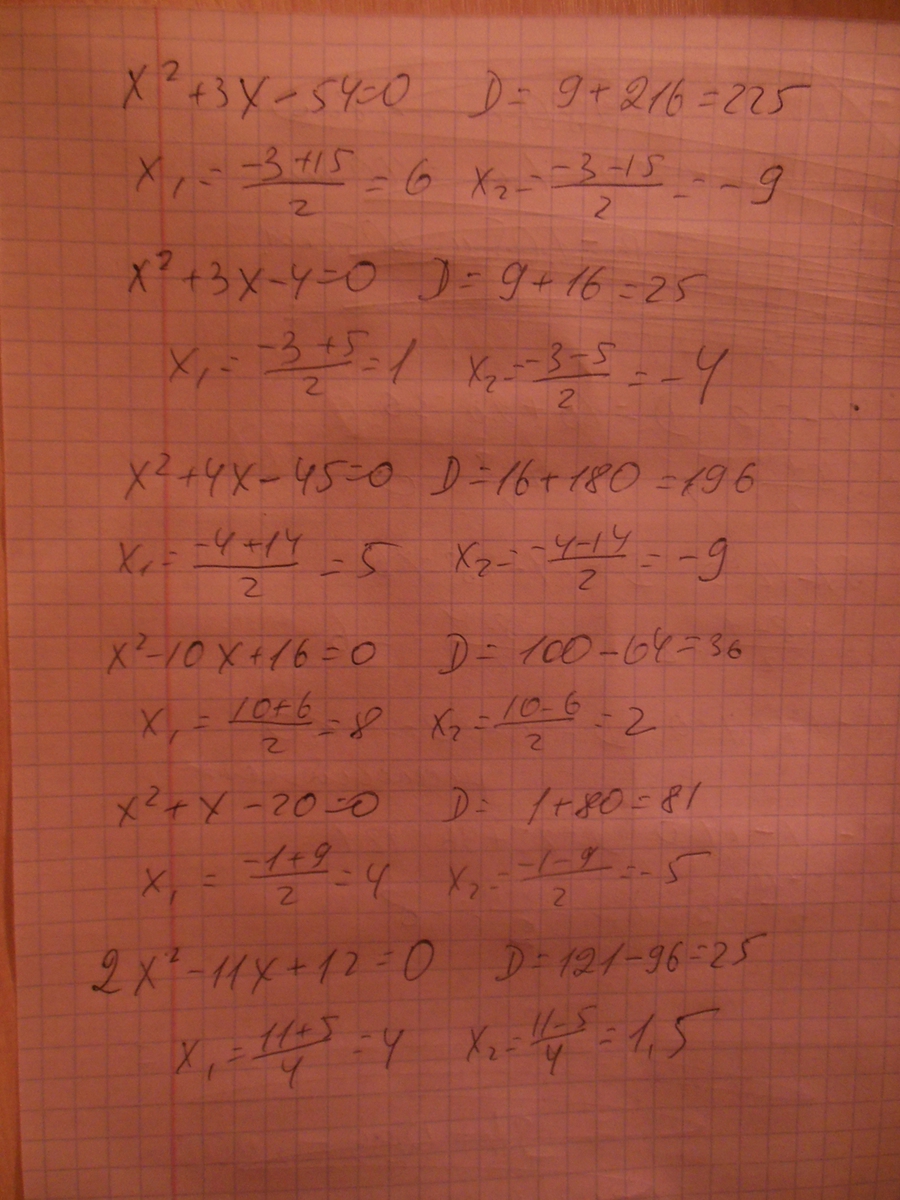 x² + 3x - 54 = 0 D = 9 + 216 = 225
x₁ = (-3 + 15)/2 = 6 x₂ = (-3 - 15)/2 = -9
x² + 3x - 4 = 0 D = 9 + 16 = 25
x₁ = (-3 + 5)/2 = 1 x₂ = (-3 - 5)/2 = -4
x² + 4x - 45 = 0 D = 16 + 180 = 196
x₁ = (-4 + 14)/2 = 5 x₂ = (-4 - 14)/2 = -9
x² - 10x + 16 = 0 D = 100 - 64 = 36
x₁ = (10 + 6)/2 = 8 x₂ = (10 - 6)/2 = 2
x² + x - 20 = 0 D = 1 + 80 = 81
x₁ = (-1 + 9)/2 = 4 x₂ = (-1 - 9)/2 = -5
2x² - 11x + 12 = 0 D = 121 - 96 = 25
x₁ = (11 + 5)/4 = 4 x₂ = (11 - 5)/4 = 1,5